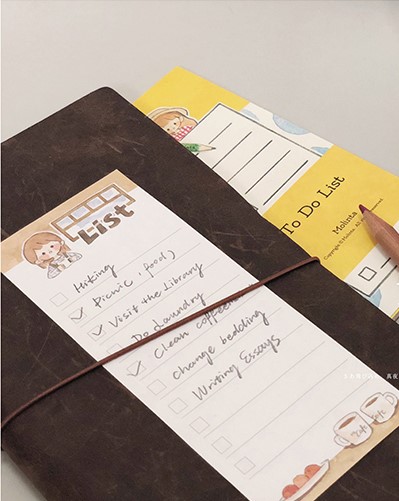 List
Hiking
Picnic (food)
Visit the Library
Do Laundry
Clean coffee
Change bedding
Writing Essays
To Do List
Molinta